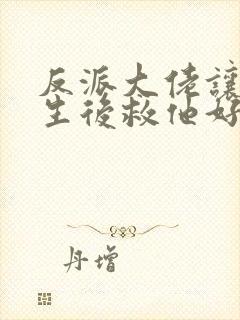 反派大佬讓
生後救他好
丹增